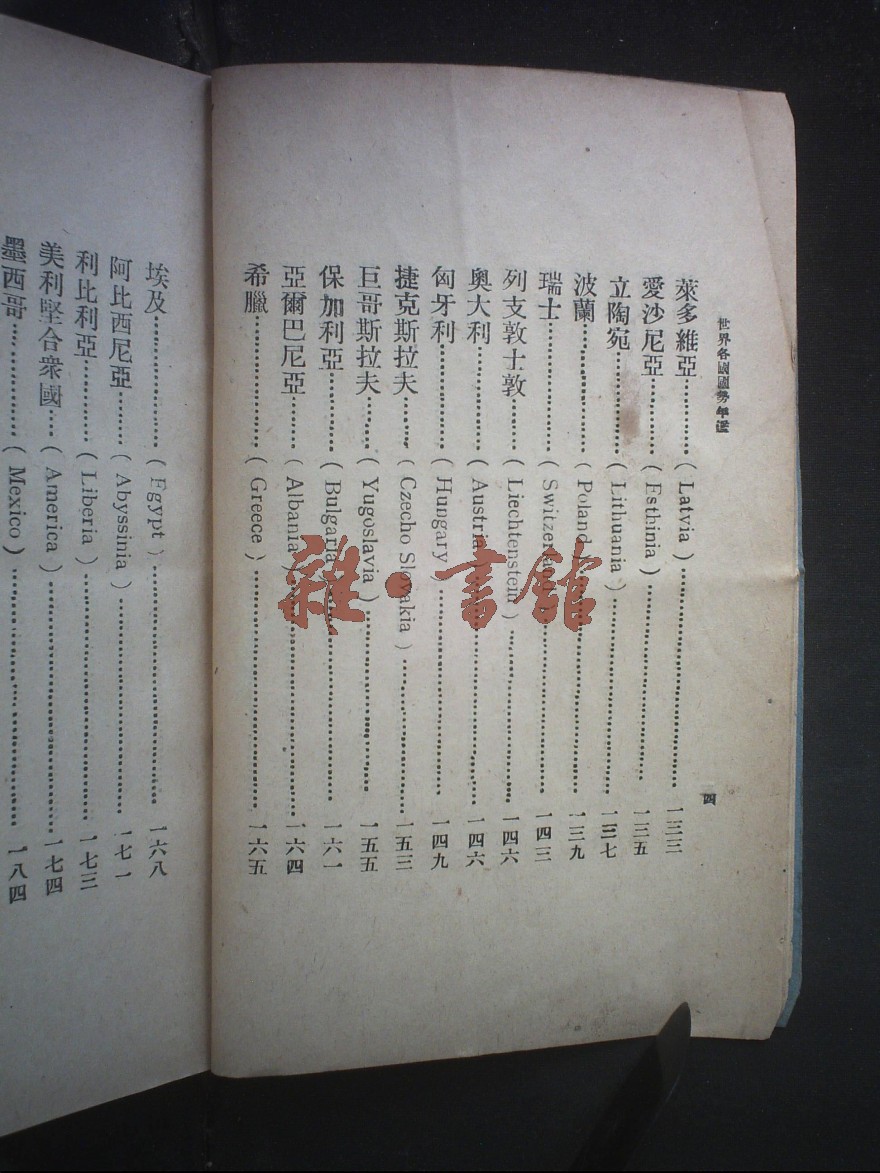 世界各國國勢年鑑
四
萊多維亞………(Latvia)………一三三
愛沙尼亞………(Esthinia)………一三五
立陶宛………(Lithuania)………一三七
波蘭………(Poland)………一三九
瑞士………(Switzerland)………一四三
列支敦士敦………(Liechtenstein)………一四六
奧大利………(Austria)………一四六
匈牙利………(Hungary)………一四九
捷克斯拉夫………(Czecho Slovakia)………一五三
巨哥斯拉夫………(Yugoslavia)………一五五
保加利亞………(Bulgaria)………一六一
亞爾巴尼亞………(Albania)………一六四
希臘………(Greece)………一六五
埃及………(Egypt)………一六八
阿比西尼亞………(Abyssinia)………一七一
利比利亞………(Liberia)………一七三
美利堅合衆國………(America)………一七四
墨西哥………(Mexico)………一八四
雜·書館